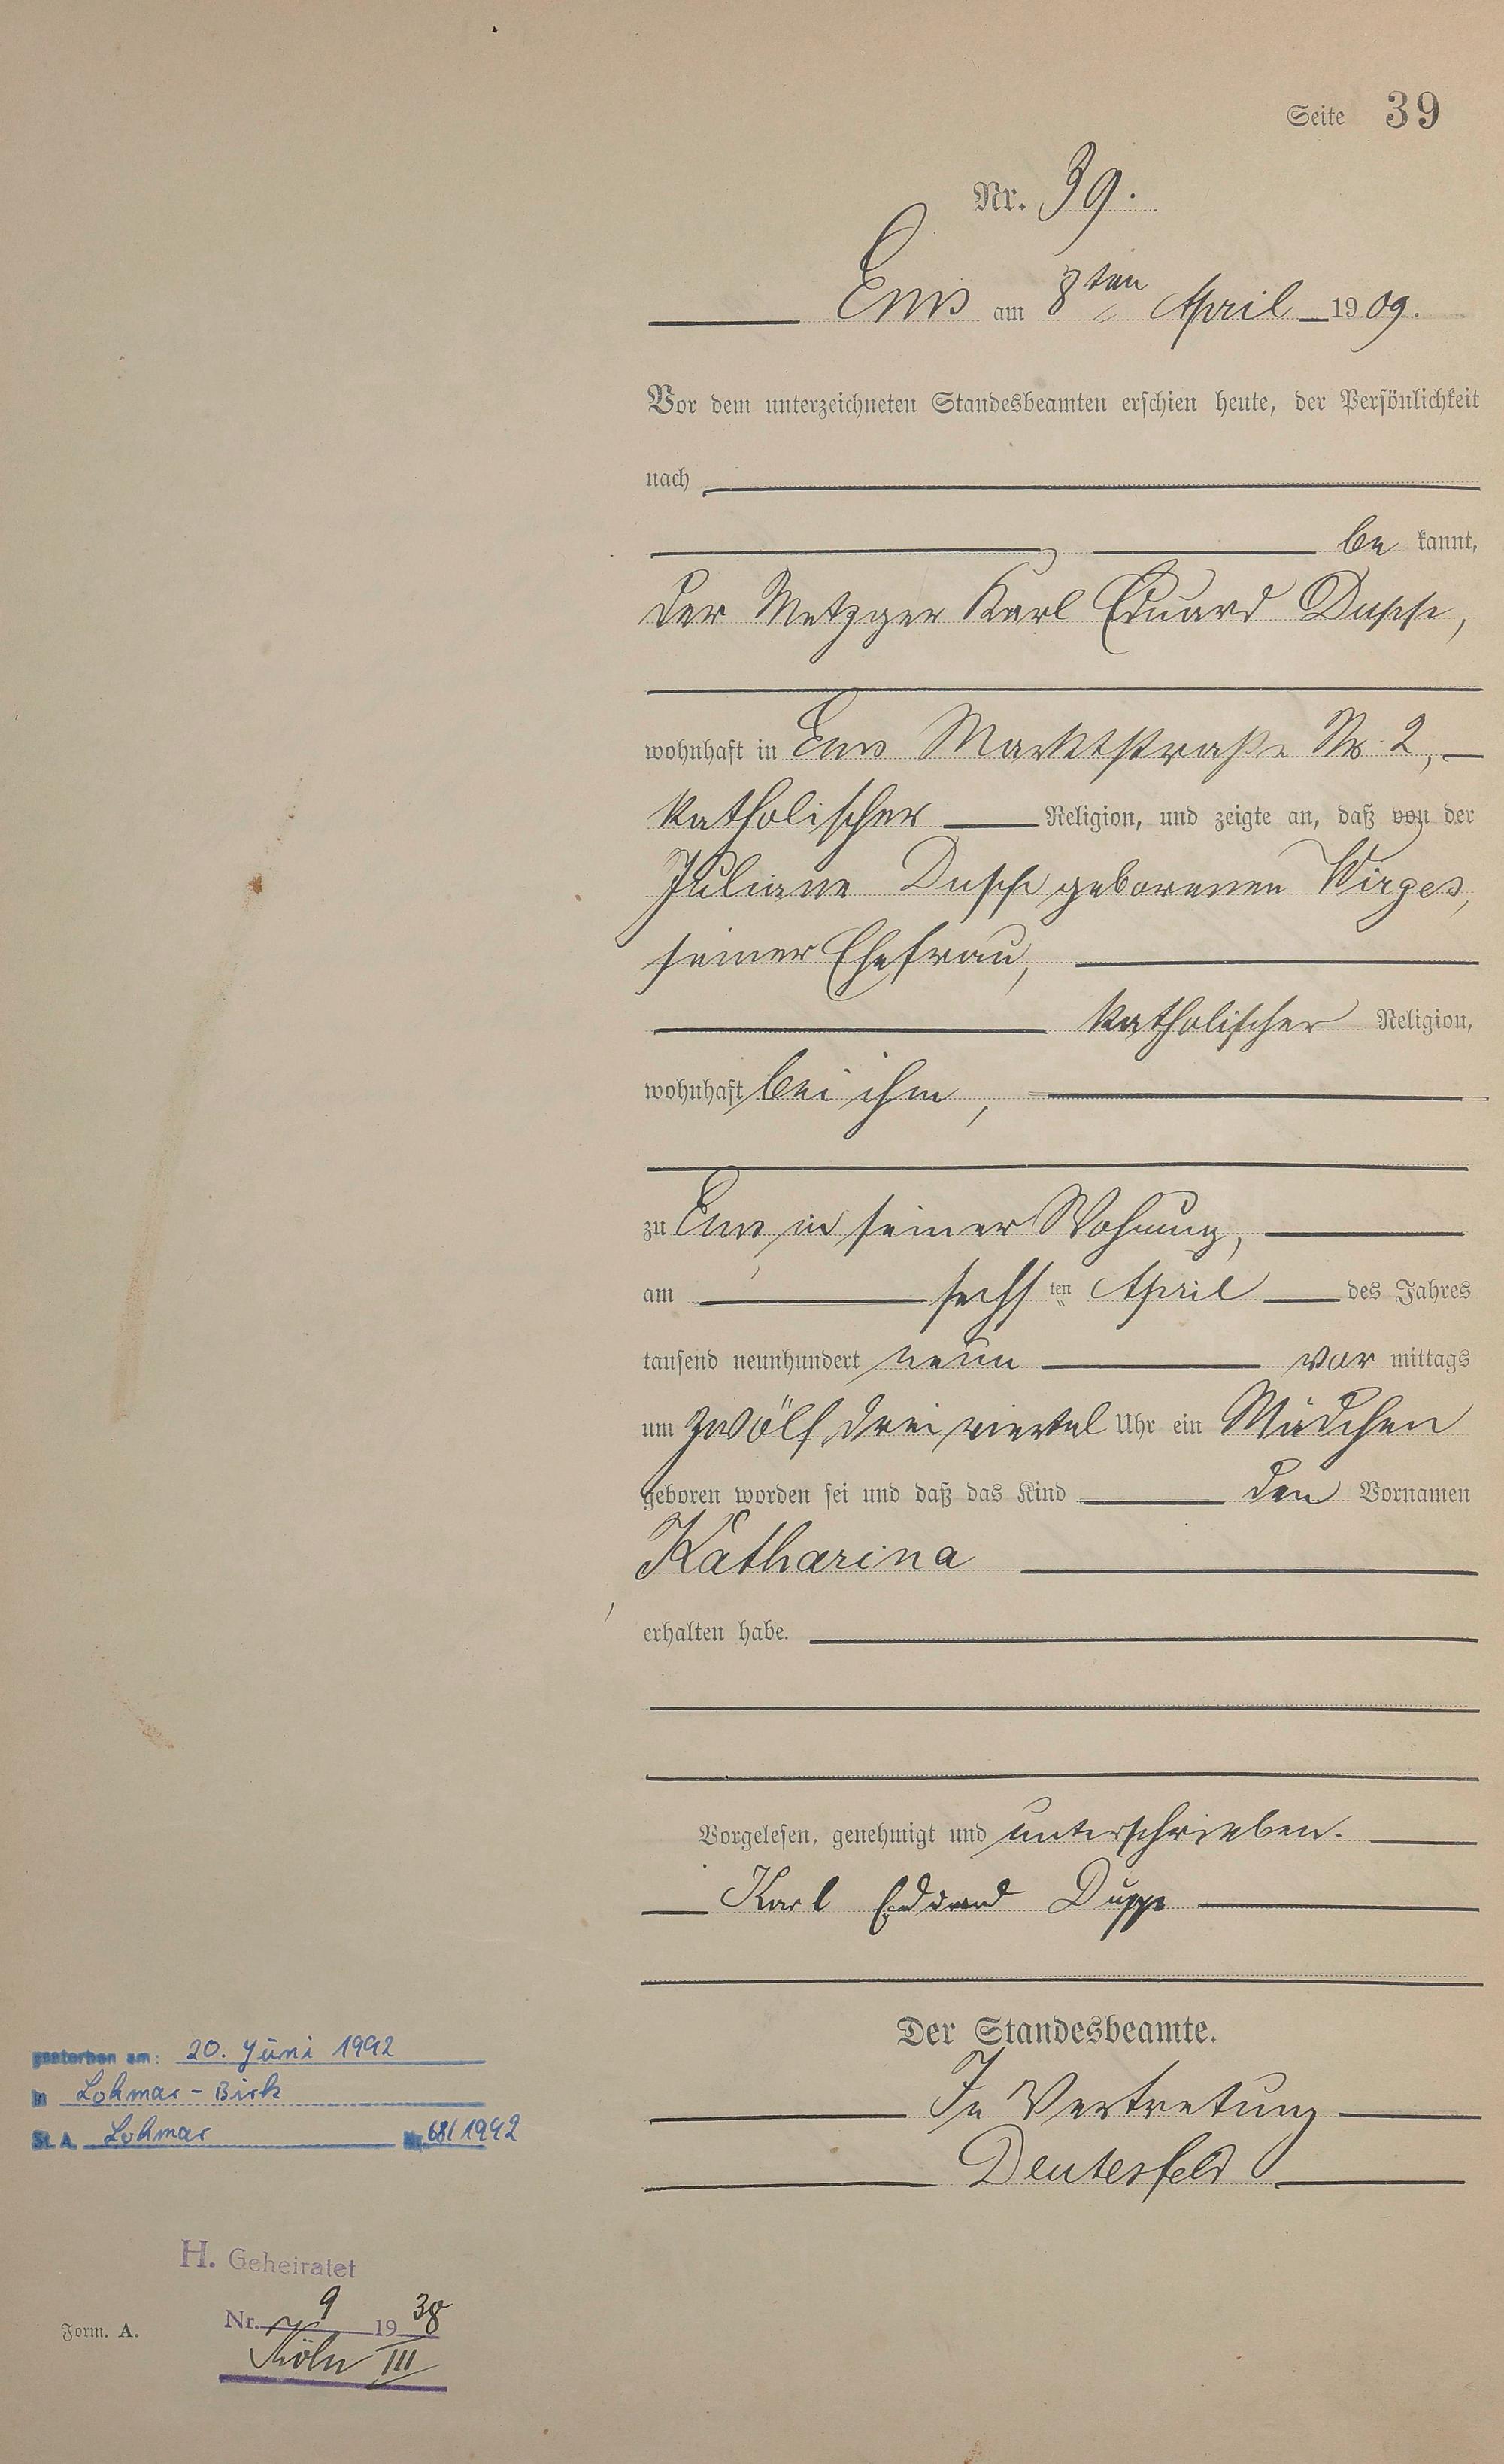 Seite 39
Nr. 39.
Ems am 8ten April 1909.
Vor dem unterzeichneten Standesbeamten erschien heute, der Persönlichkeit
nach
be kannt,
der Metzger Karl Eduard Duppe,
wohnhaft in Ems Marktstraße Nr. 2,
katholischer Religion, und zeigte an, daß von der
Juliane Duppe geborenen Wirges,
seiner Ehefrau,
katholischer Religion,
wohnhaft bei ihm,
zu Ems, in seiner Wohnung,
am sechsten April des Jahres
tausend neunhundert neun vor mittags
um zwölf dreiviertel Uhr ein Mädchen
geboren worden sei und daß das Kind den Vornamen
Katharina
erhalten habe.
Vorgelesen, genehmigt und unterschrieben.
Karl Eduard Duppe
Der Standesbeamte.
In Vertretung
Deutesfeld
gestorben am: 20. Juni 1992
in Lohmar - Birk
St. A. Lohmar Nr. 68/1992
H. Geheiratet
Nr. 9 1938
Köln III
Form. A.